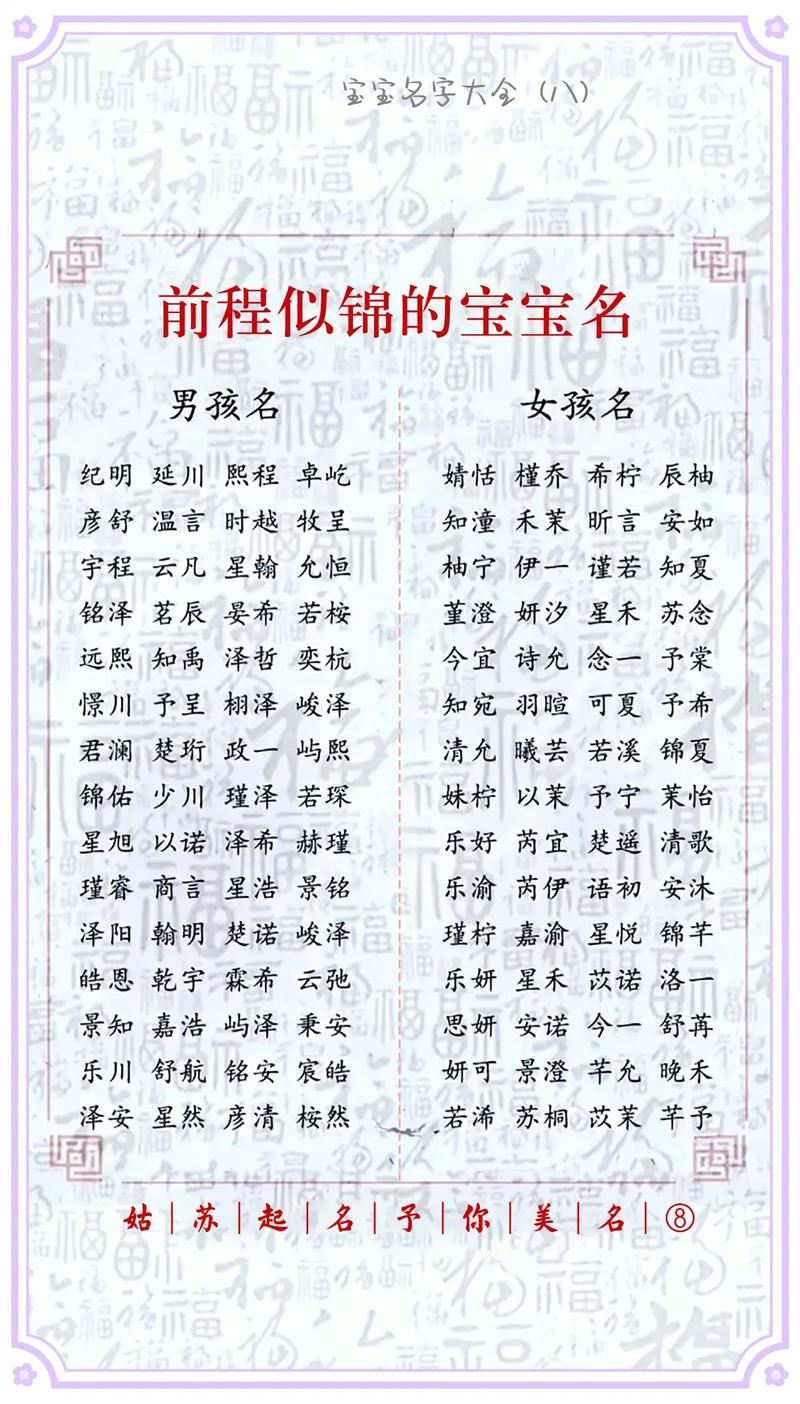 宝宝名字大全（八）
前程似锦的宝宝名
男孩名
纪明 延川 熙程 卓屹
彦舒 温言 时越 牧呈
宇程 云凡 星翰 允恒
铭泽 茗辰 晏希 若桉
远熙 知禹 泽哲 奕杭
憬川 予呈 栩泽 峻泽
君澜 楚珩 政一 屿熙
锦佑 少川 瑾泽 若琛
星旭 以诺 泽希 赫瑾
瑾睿 商言 星浩 景铭
泽阳 翰明 楚诺 峻泽
皓恩 乾宇 霖希 云弛
景知 嘉浩 屿泽 秉安
乐川 舒航 铭安 宸皓
泽安 星然 彦清 桉然
女孩名
婧恬 槿乔 希柠 辰柚
知潼 禾茉 昕言 安如
柚宁 伊一 谨若 知夏
堇澄 妍汐 星禾 苏念
今宜 诗允 念一 予棠
知宛 羽暄 可夏 予希
清允 曦芸 若溪 锦夏
妹柠 以茉 予宁 茉怡
乐好 芮宜 楚遥 清歌
乐渝 芮伊 语初 安沐
瑾柠 嘉渝 星悦 锦芊
乐妍 星禾 苡诺 洛一
思妍 安诺 今一 舒苒
妍可 景澄 芊允 晚禾
若浠 苏桐 苡茉 芊予
姑|苏|起|名|予|你|美|名|⑧